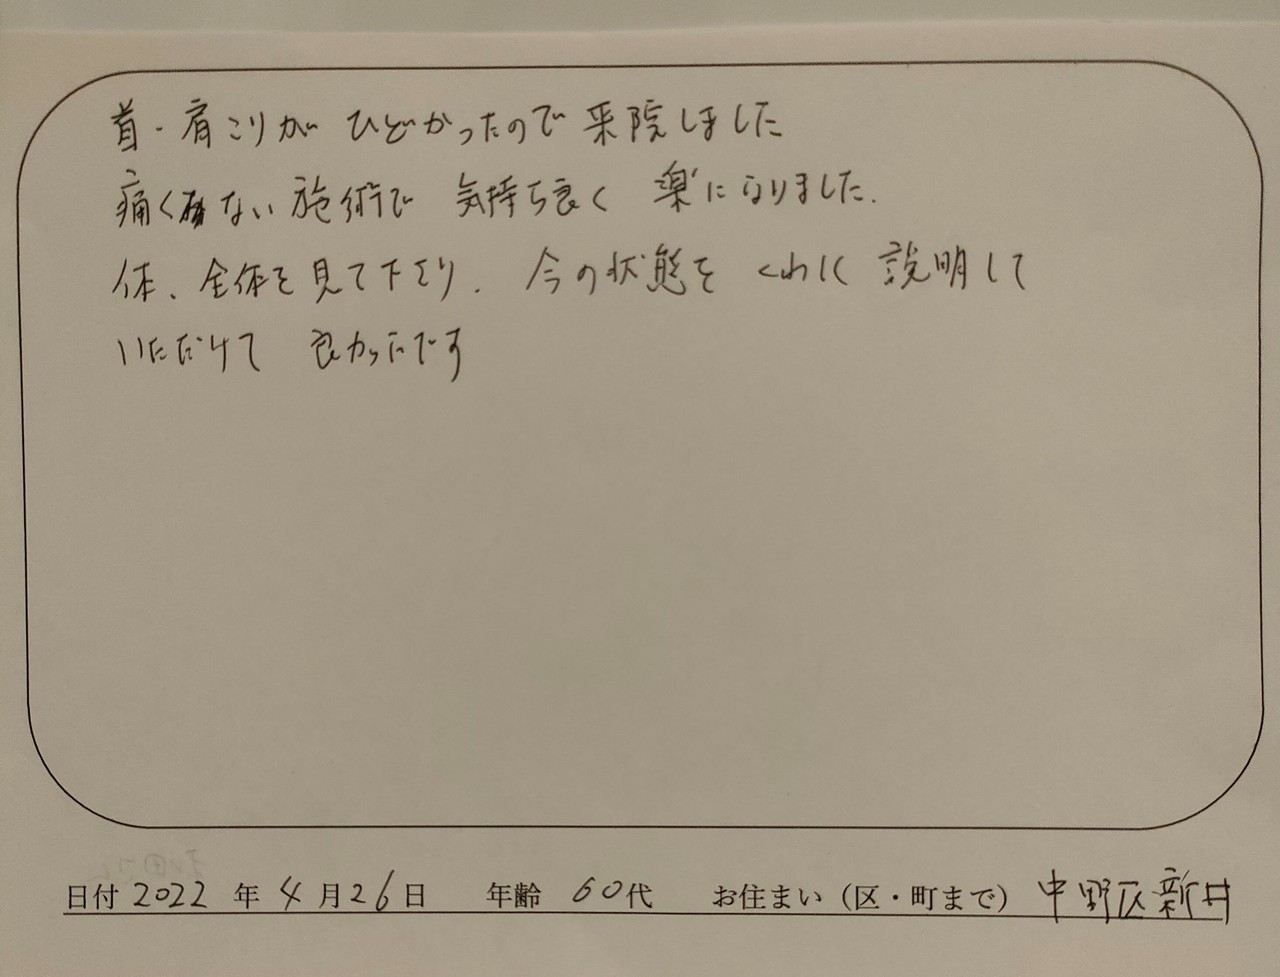 首・肩こりが ひどかったので来院しました
痛くない施術で 気持ち良く 楽になりました.
体、全体を見て下さり、今の状態を くわしく 説明して
いただけて 良かったです
日付 2022 年 4 月 26 日 年齢 60代 お住まい（区・町まで） 中野区新井